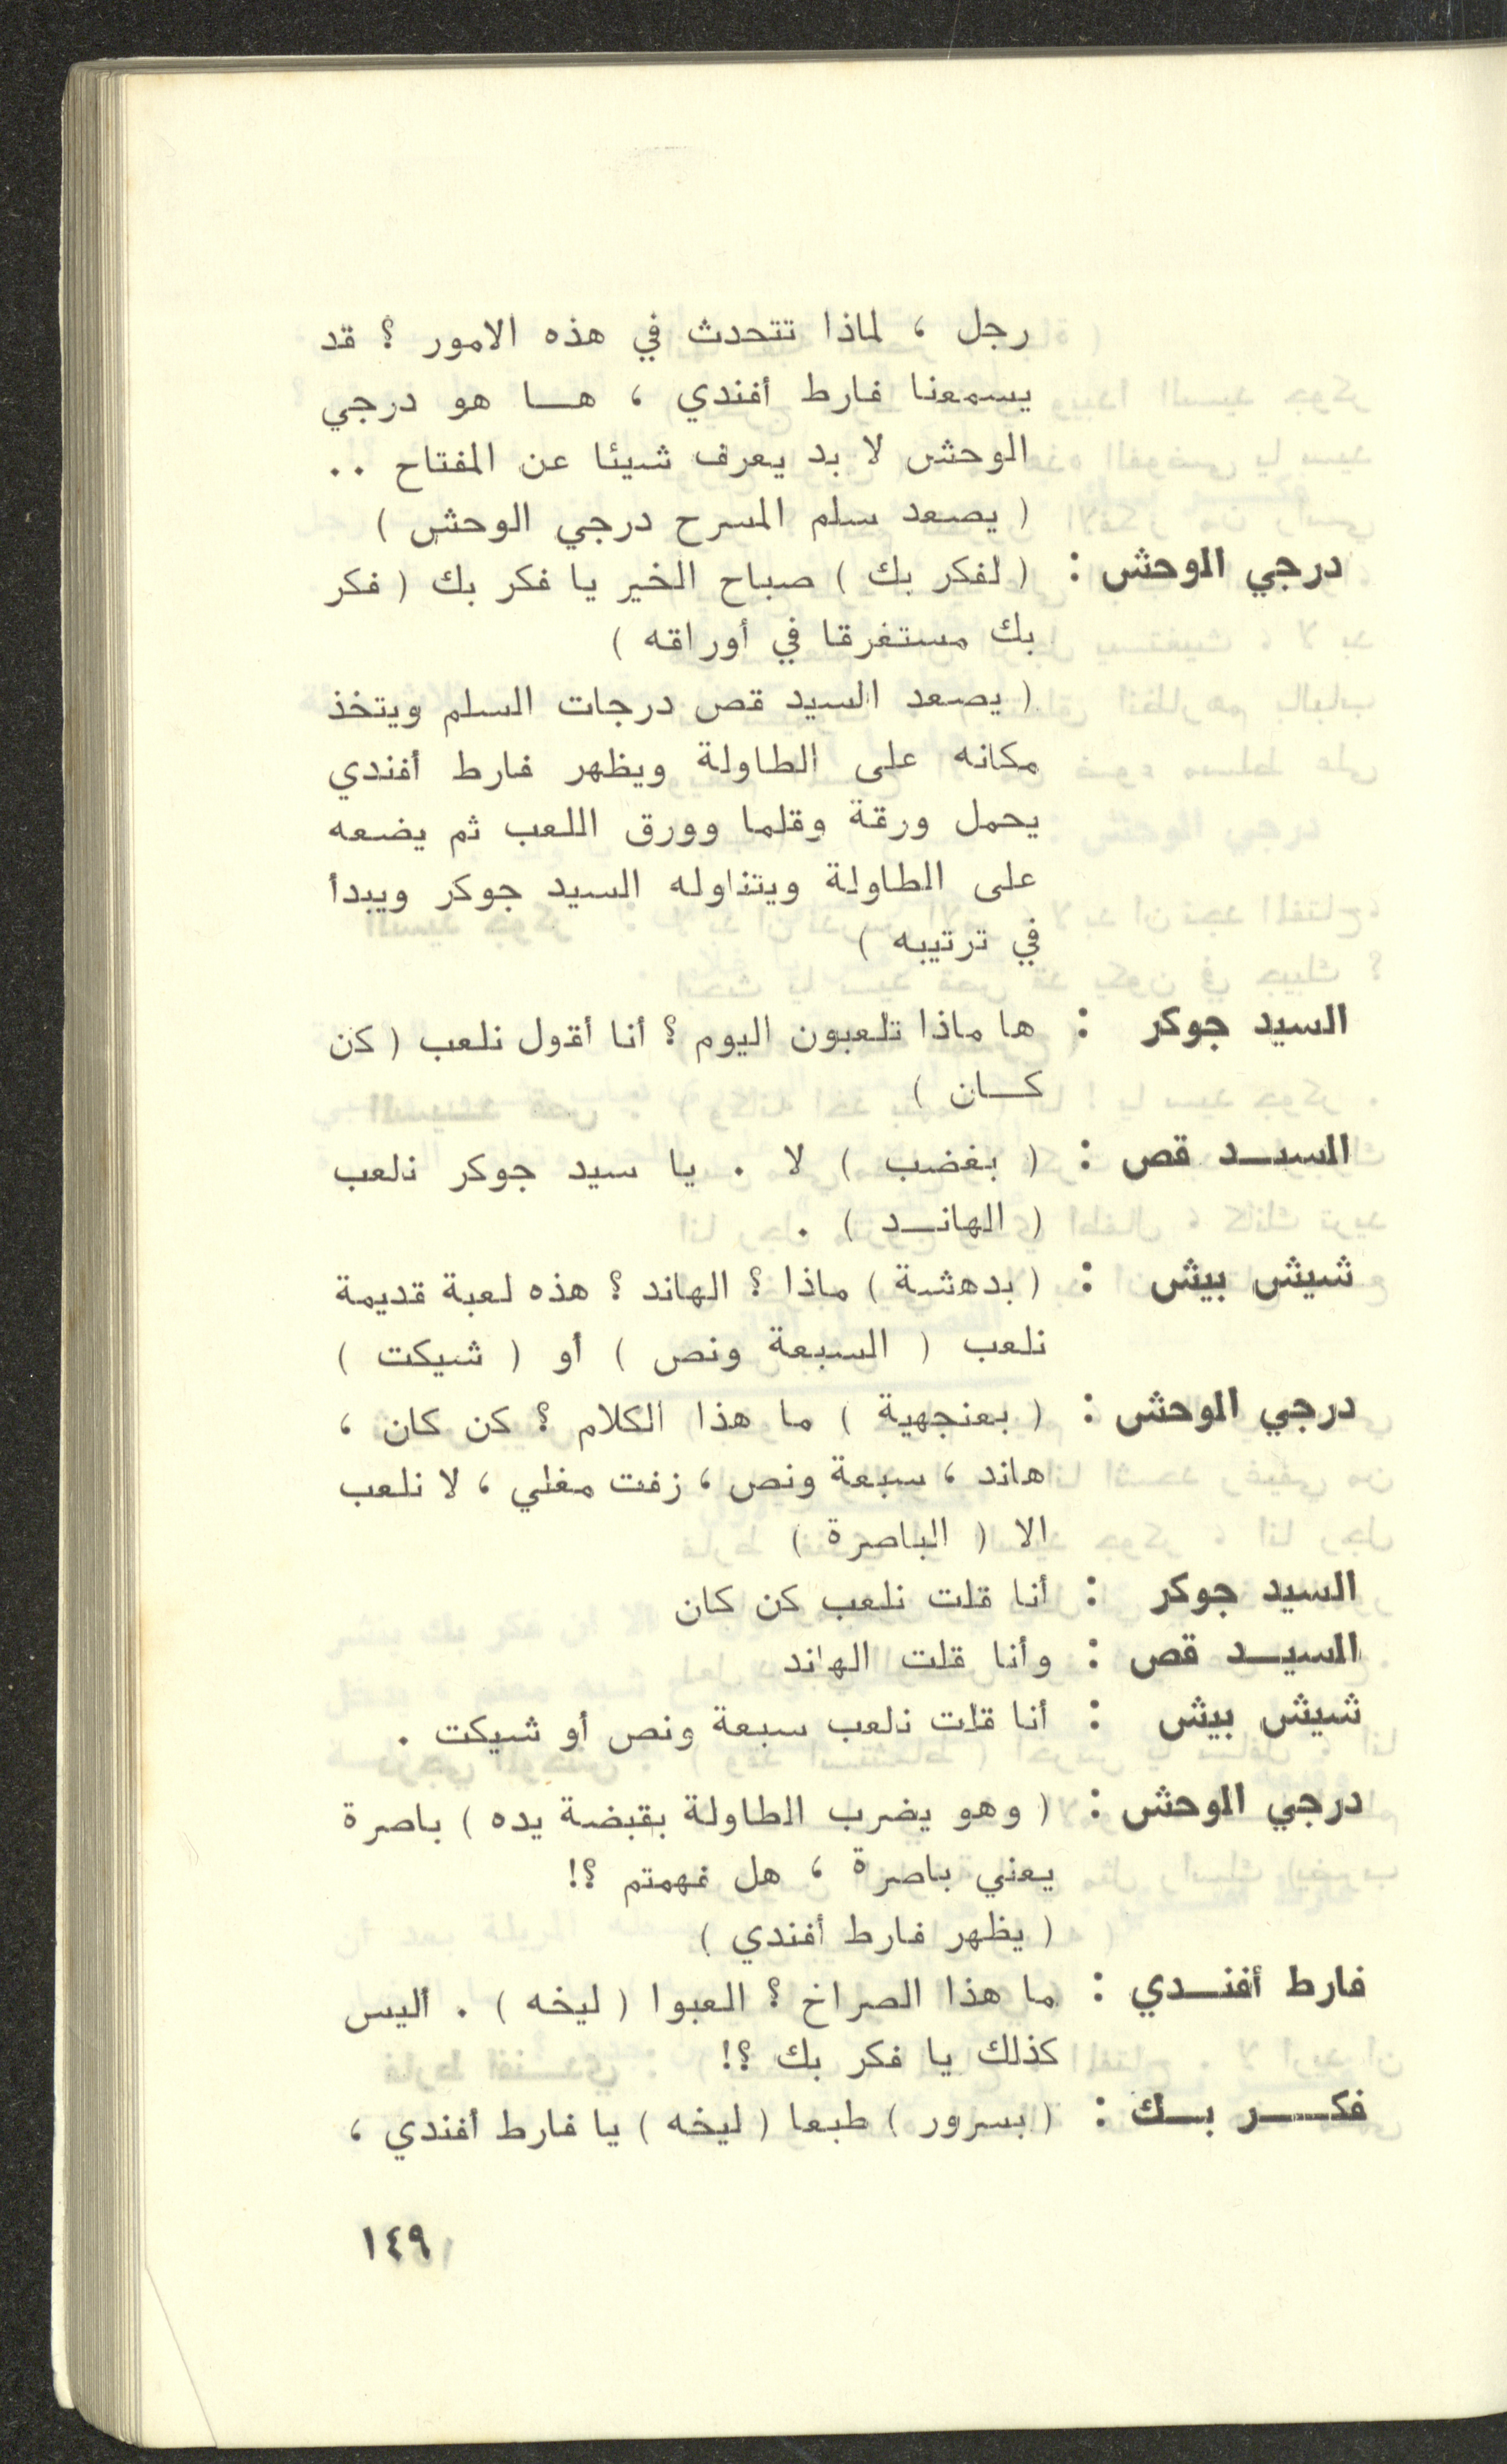 رجل ، لماذا تتحدث في هذه الامور ؟ قد
يسمعنا فارط أفندي ، هـا هو درجي
الوحش لا بد يعرف شيئا عن المفتاح ..
( يصعد سلم المسرح درجي الوحش )
درجي الوحش : ( لفكر بك ) صباح الخير يا فكر بك ( فكر
بك مستغرقا في أوراقه )
( يصعد السيد قص درجات السلم ويتخذ
مكانه على الطاولة ويظهر فارط أفندي
يحمل ورقة وقلما وورق اللعب ثم يضعه
على الطاولة ويتناوله السيد جوكر ويبدأ
في ترتيبه )
السيد جوكر : ها ماذا تلعبون اليوم ؟ أنا أقول نلعب ( كن
كـان )
السيـد قص : ( بغضب ) لا . يا سيد جوكر نلعب
( الهانـد ) .
شيش بيش : ( بدهشة ) ماذا ؟ الهاند ؟ هذه لعبة قديمة
نلعب ( السبعة ونص ) أو ( شيكت )
درجي الوحش : ( بعنجهية ) ما هذا الكلام ؟ كن كان ،
هاند ، سبعة ونص ، زفت مغلي ، لا نلعب
الا ( الباصرة )
السيد جوكر : أنا قلت نلعب كن كان
السيـد قص : وأنا قلت الهاند
شيش بيش : أنا قلت نلعب سبعة ونص أو شيكت .
درجي الوحش : ( وهو يضرب الطاولة بقبضة يده ) باصرة
يعني باصرة ، هل فهمتم ؟!
( يظهر فارط أفندي )
فارط أفنـدي : ما هذا الصراخ ؟ العبوا ( ليخه ) . أليس
كذلك يا فكر بك ؟!
فكـــر بـك : ( بسرور ) طبعا ( ليخه ) يا فارط أفندي ،
١٤٩